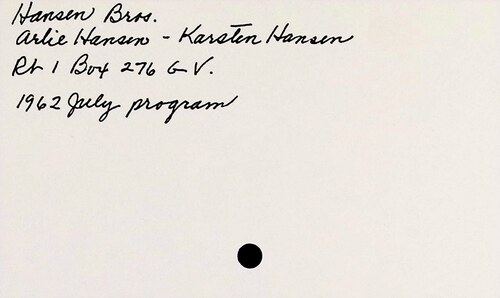 Hansen Bros.
Arlie Hansen - Karsten Hansen
Rt 1 Box 276 G V.
1962 July program